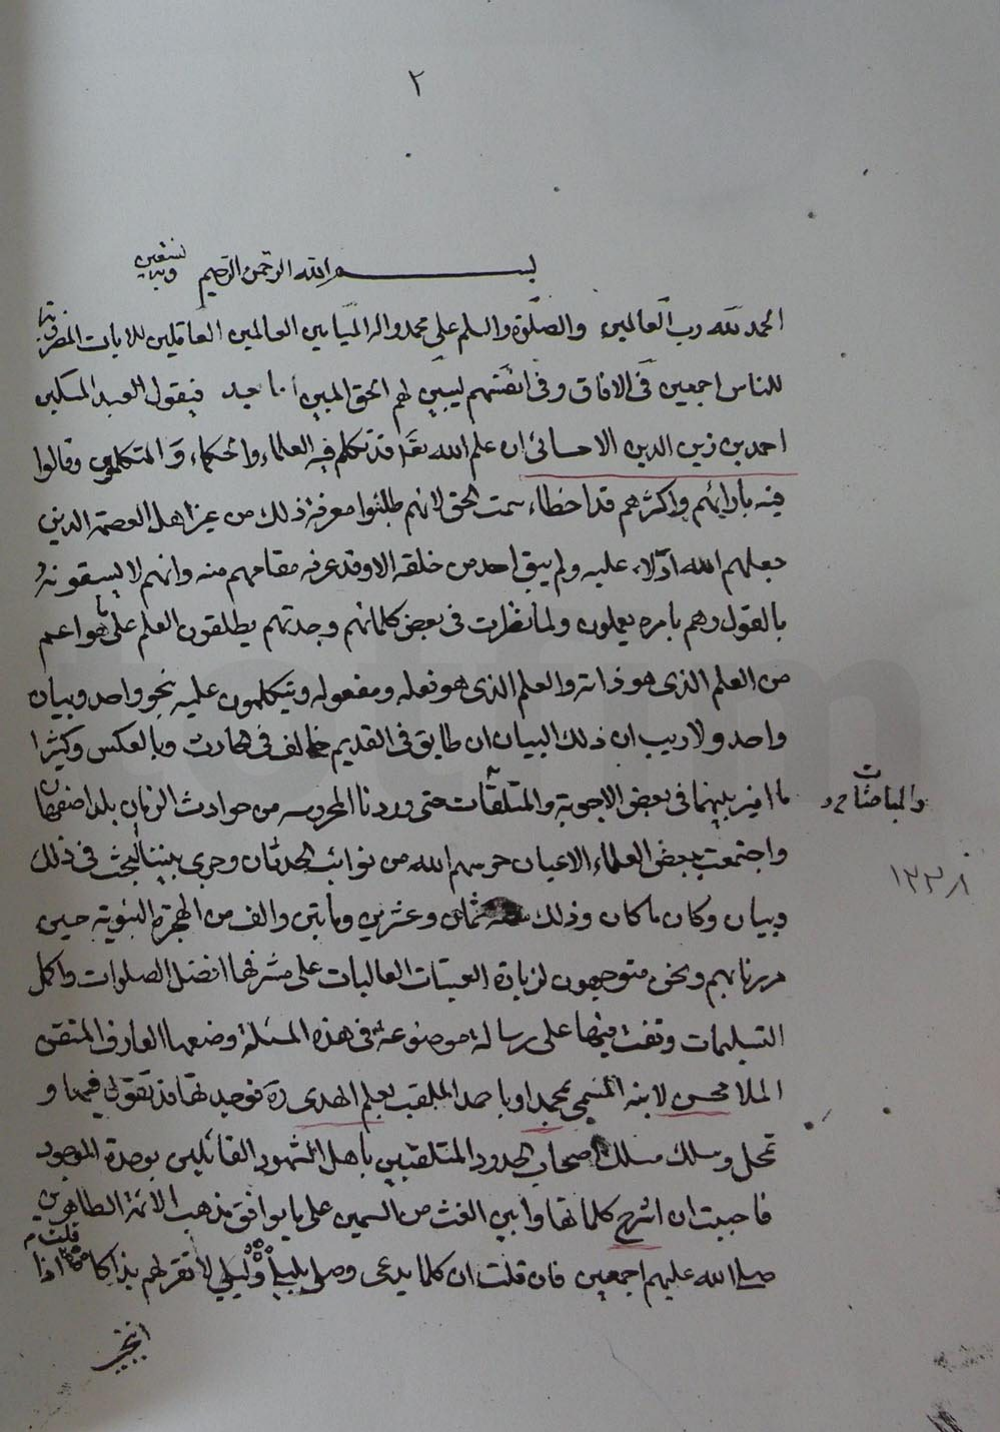 ٢
بسم الله الرحمن الرحيم وبه نستعين
الحمد لله رب العالمين والصلوة والسلم على محمد واله الميامين العالمين العاقلين للايات المضروبة
للناس اجمعين فى الافاق وفى انفسهم ليبين لهم الحق المبين أما بعد فيقول العبد المسكين
احمد بن زين الدين الاحسائى ان علم الله تعا قد تكلم فيه العلماء والحكماء والمتكلمون وقالوا
فيه بارائهم واكثرهم قد اخطاء سمت الحق لانهم طلبوا معرفة ذلك من غير اهل العصمة الذين
جعلهم الله ادلاء عليه ولم يبق احد من خلقه الا وقد عرفه مقامهم منه وانهم لا يسبقونه
بالقول وهم بامره يعملون ولما نظرت فى بعض كلماتهم وجدتهم يطلقون العلم على ما هو اعم
من العلم الذى هو ذاته والعلم الذى هو فعله ومفعوله ويتكلمون عليه بنحو واحد وبيان
واحد ولا ريب ان ذلك البيان ان طابق فى القديم خالف فى الحادث وبالعكس وكثيرا
ما فى بعض الاجوبة حتى وردنا المحروسه من حوادث الزمان بلد اصفهان
والمباحثات
واجتمعت ببعض العلماء الاعيان حرسهم الله من نوائب الحدثان وجرى بيننا البحث فى ذلك
١٢٢٨
وبيان وكان ما كان وذلك سنة ثمان وعشرين ومأتين والف من الهجرة النبوية حين
مررنا بهم ونحن متوجهون لزيارة العتبات العاليات على مشرفها افضل الصلوات واكمل
التسليمات وقفت فيها على رسالة موضوعة فى هذه المسئلة وضعها العارف المتقن
الملا محسن لابنه المسمى بمحمد او باحمد الملقب بعلم الهدى ره فوجدتها قد تقول فيها و
تمحل وسلك مسلك اصحاب الملقبين باهل الشهود القائلين بوحدة الوجود
فاحببت ان اشرح كلماتها وابين الغث من السمين على ما يوافق مذهب الائمة الطاهرين
صلى الله عليهم اجمعين فان قلت ان كلا يدعى وصلا بليلى وليلى لا تقر لهم بذاكا قلت اذا
انبجست